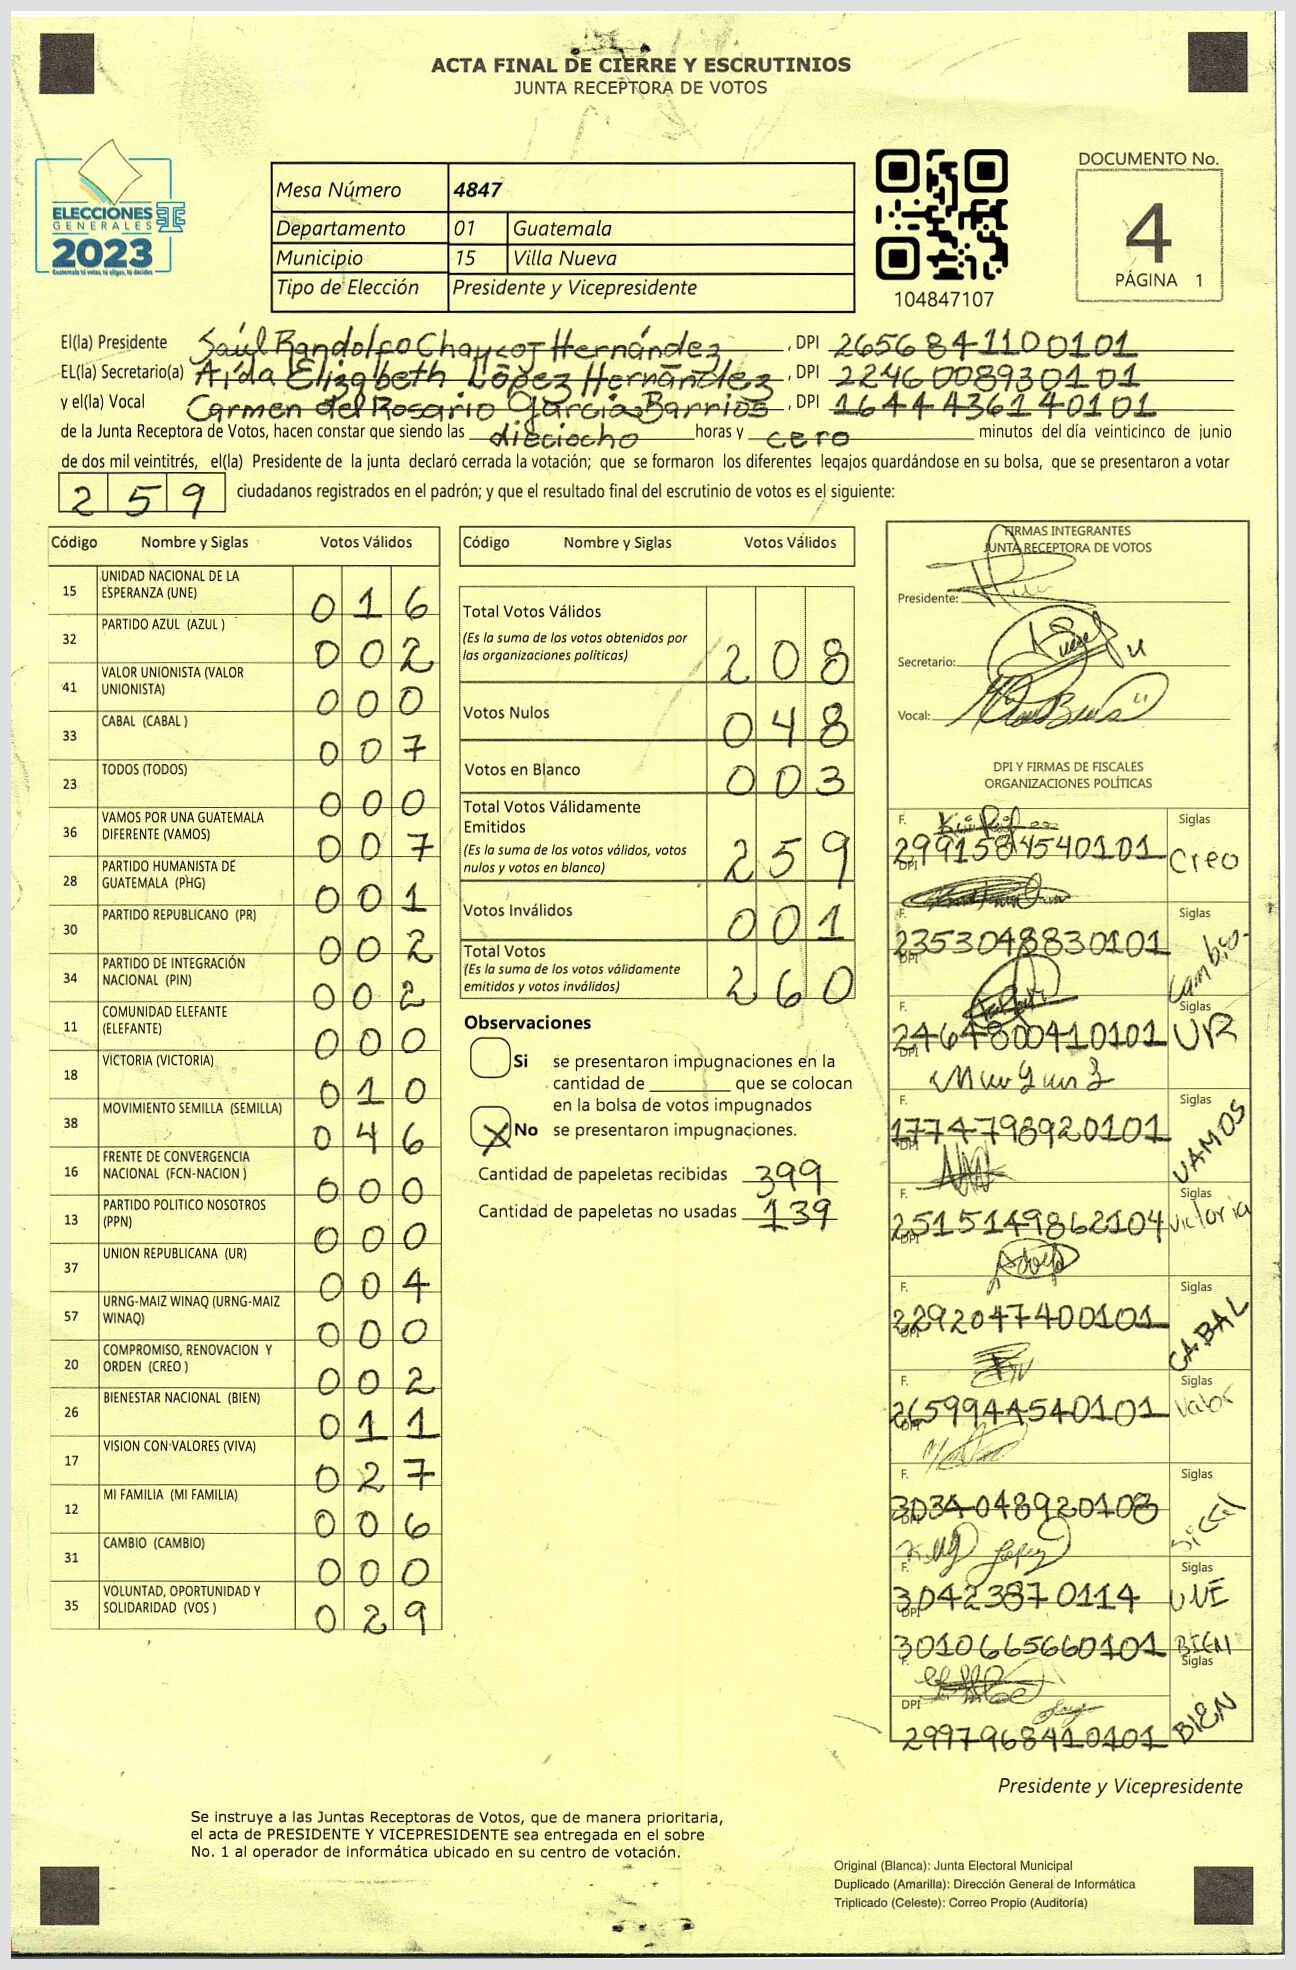 ACTA FINAL DE CIERRE Y ESCRUTINIOS
JUNTA RECEPTORA DE VOTOS
ELECCIONES
GENERALES
2023
Guatemala tú votas, tú eliges, tú decides
Mesa Número 4847
Departamento 01 Guatemala
Municipio 15 Villa Nueva
Tipo de Elección Presidente y Vicepresidente
104847107
DOCUMENTO No.
4
PÁGINA 1
El(la) Presidente Saúl Randolfo Chaycoj Hernández, DPI 2656841100101
EL(la) Secretario(a) Aida Elizabeth López Hernández, DPI 2246008930101
y el(la) Vocal Carmen del Rosario García Barrios, DPI 1644436140101
de la Junta Receptora de Votos, hacen constar que siendo las dieciocho horas y cero minutos del día veinticinco de junio
de dos mil veintitrés, el(la) Presidente de la junta declaró cerrada la votación; que se formaron los diferentes legajos guardándose en su bolsa, que se presentaron a votar
259 ciudadanos registrados en el padrón; y que el resultado final del escrutinio de votos es el siguiente:
Código Nombre y Siglas Votos Válidos
15 UNIDAD NACIONAL DE LA ESPERANZA (UNE) 016
32 PARTIDO AZUL (AZUL ) 002
41 VALOR UNIONISTA (VALOR UNIONISTA) 000
33 CABAL (CABAL ) 007
23 TODOS (TODOS) 000
36 VAMOS POR UNA GUATEMALA DIFERENTE (VAMOS) 007
28 PARTIDO HUMANISTA DE GUATEMALA (PHG) 001
30 PARTIDO REPUBLICANO (PR) 002
34 PARTIDO DE INTEGRACIÓN NACIONAL (PIN) 002
11 COMUNIDAD ELEFANTE (ELEFANTE) 000
18 VICTORIA (VICTORIA) 010
38 MOVIMIENTO SEMILLA (SEMILLA) 046
16 FRENTE DE CONVERGENCIA NACIONAL (FCN-NACION ) 000
13 PARTIDO POLITICO NOSOTROS (PPN) 000
37 UNION REPUBLICANA (UR) 004
57 URNG-MAIZ WINAQ (URNG-MAIZ WINAQ) 000
20 COMPROMISO, RENOVACION Y ORDEN (CREO ) 002
26 BIENESTAR NACIONAL (BIEN) 011
17 VISION CON VALORES (VIVA) 027
12 MI FAMILIA (MI FAMILIA) 006
31 CAMBIO (CAMBIO) 000
35 VOLUNTAD, OPORTUNIDAD Y SOLIDARIDAD (VOS ) 029
Código Nombre y Siglas Votos Válidos
Total Votos Válidos 208
(Es la suma de los votos obtenidos por
las organizaciones políticas)
Votos Nulos 048
Votos en Blanco 003
Total Votos Válidamente
Emitidos 259
(Es la suma de los votos válidos, votos
nulos y votos en blanco)
Votos Inválidos 001
Total Votos 260
(Es la suma de los votos válidamente
emitidos y votos inválidos)
Observaciones
Si se presentaron impugnaciones en la
cantidad de ________ que se colocan
en la bolsa de votos impugnados
X No se presentaron impugnaciones.
Cantidad de papeletas recibidas 399
Cantidad de papeletas no usadas 139
FIRMAS INTEGRANTES
JUNTA RECEPTORA DE VOTOS
Presidente:
Secretario:
Vocal:
DPI Y FIRMAS DE FISCALES
ORGANIZACIONES POLÍTICAS
F. Siglas
DPI 2991584540101 Creo
F. Siglas
DPI 2353048830101 Cambio
F. Siglas
DPI 2464800410101 UR
F. Siglas
DPI 1774798920101 VAMOS
F. Siglas
DPI 2515149862104 Victoria
F. Siglas
DPI 2292047400101 CABAL
F. Siglas
DPI 2659944540101 Valor
F. Siglas
DPI 3034048920108
F. Siglas
DPI 30423870114 UNE
3010665660101 BIEN
F. Siglas
DPI 2997968410101 BIEN
Presidente y Vicepresidente
Se instruye a las Juntas Receptoras de Votos, que de manera prioritaria,
el acta de PRESIDENTE Y VICEPRESIDENTE sea entregada en el sobre
No. 1 al operador de informática ubicado en su centro de votación.
Original (Blanca): Junta Electoral Municipal
Duplicado (Amarilla): Dirección General de Informática
Triplicado (Celeste): Correo Propio (Auditoría)